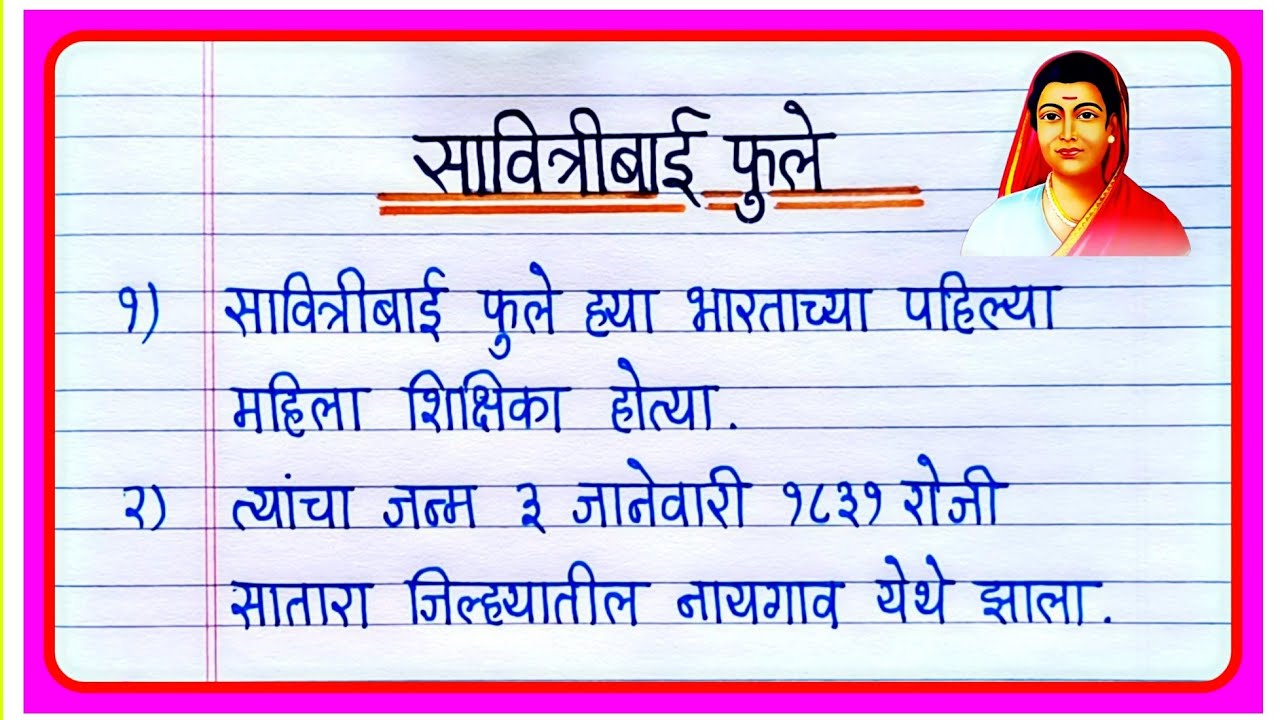 सावित्रीबाई फुले
१) सावित्रीबाई फुले ह्या भारताच्या पहिल्या
महिला शिक्षिका होत्या.
२) त्यांचा जन्म ३ जानेवारी १८३१ रोजी
सातारा जिल्ह्यातील नायगाव येथे झाला.